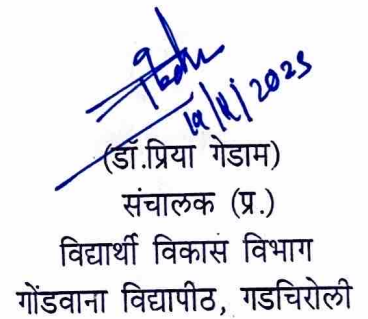 (डॉ.प्रिया गेडाम)
संचालक (प्र.)
विद्यार्थी विकास विभाग
गोंडवाना विद्यापीठ, गडचिरोली